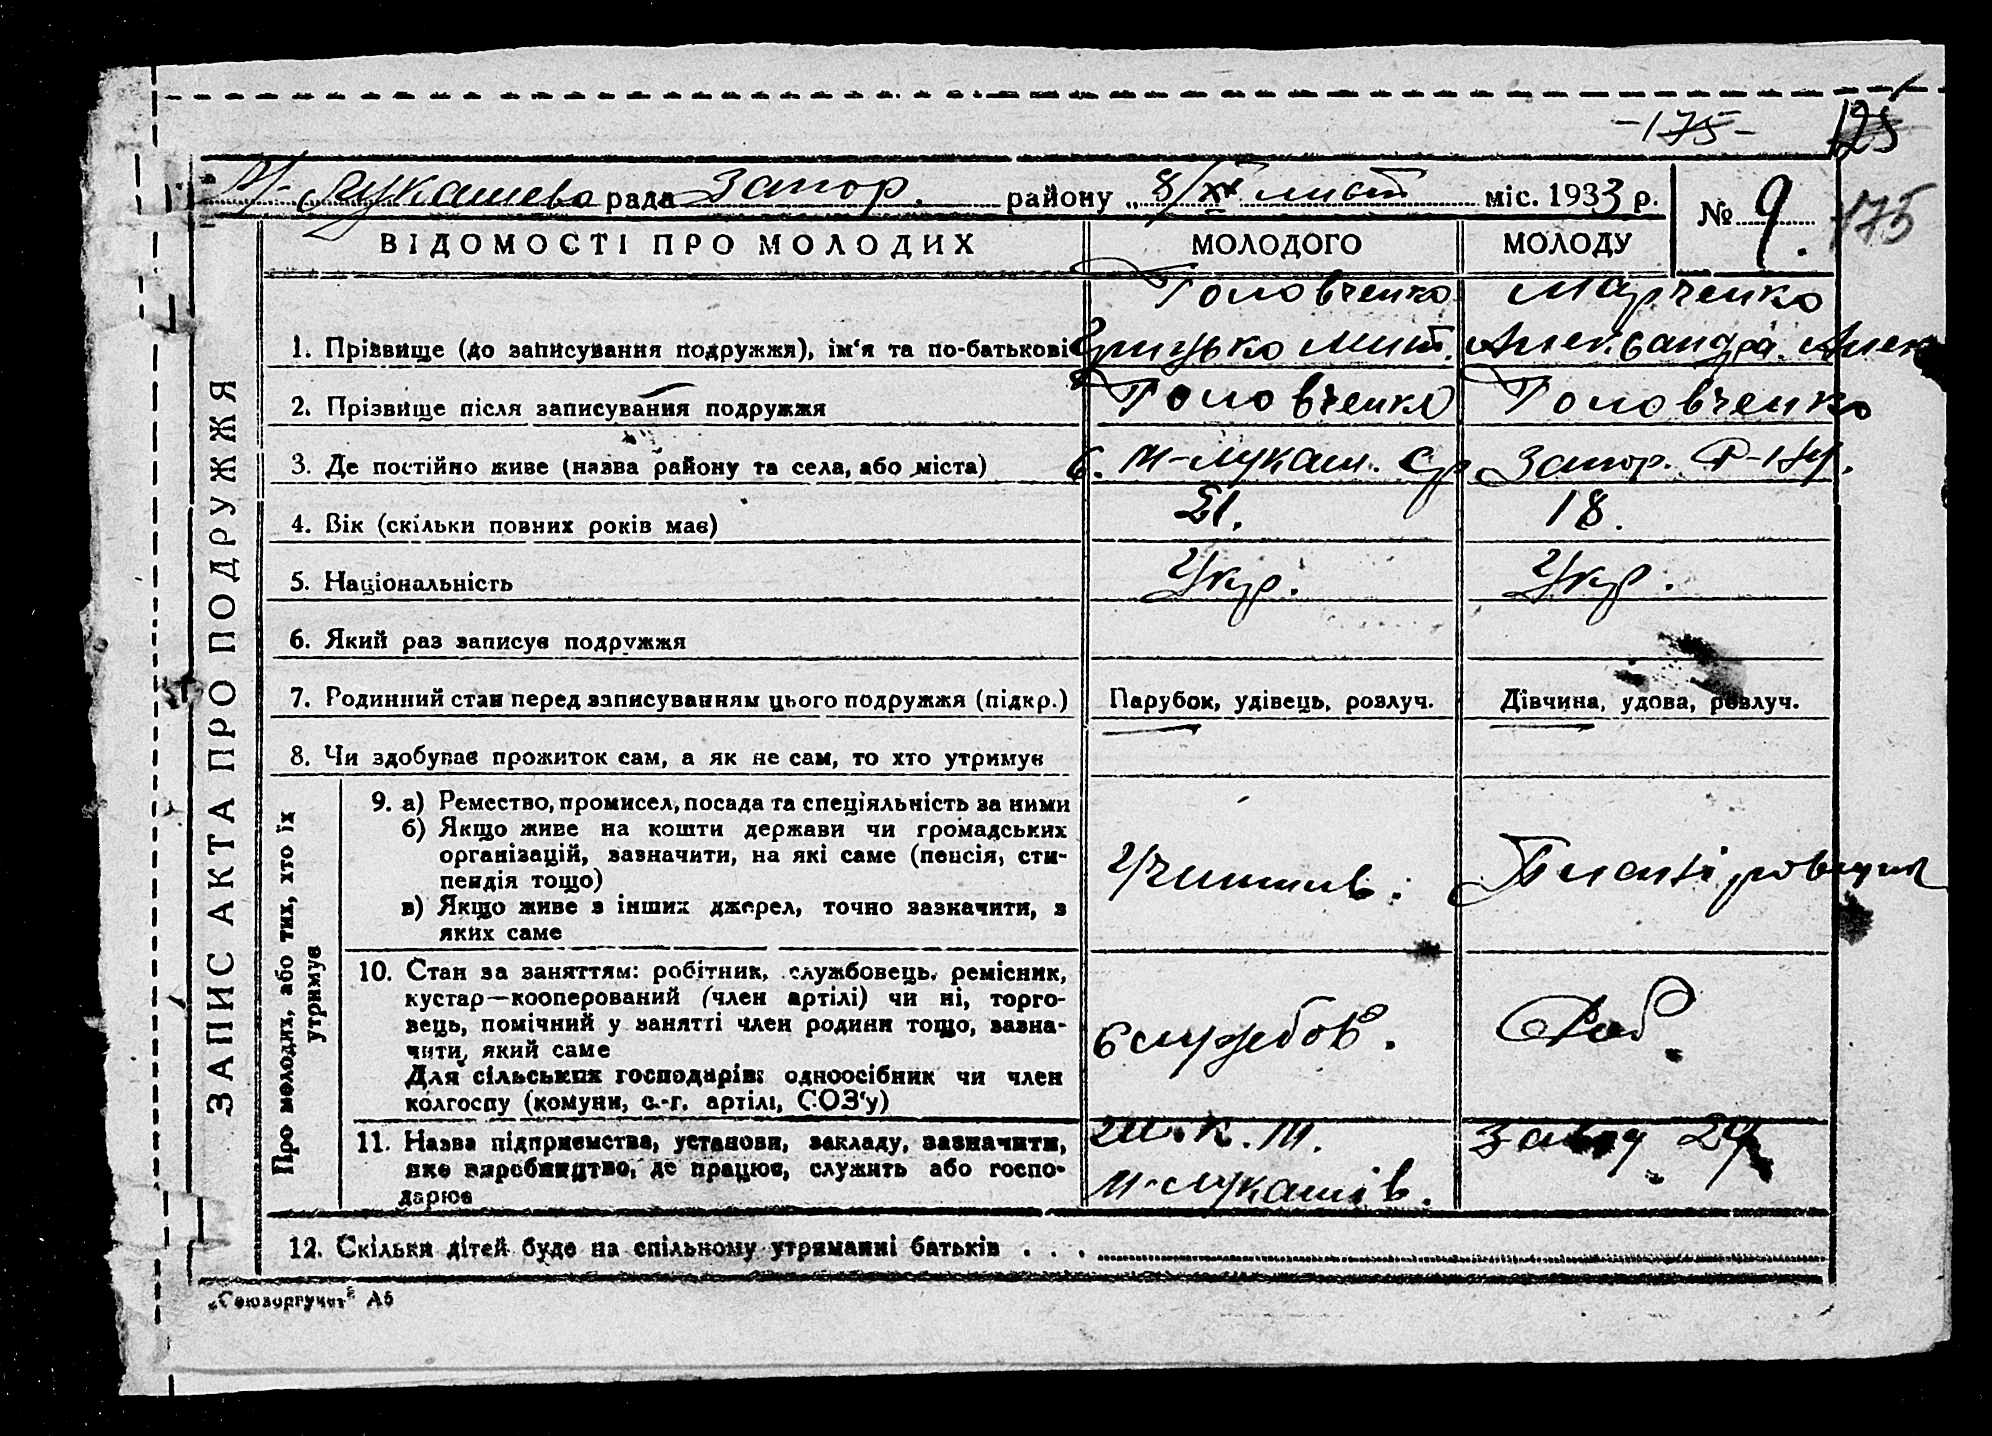 -175- 125
М-Лукашева рада Запор. району „8/XI лист міс. 1933 р.
№ 9. 175
ВІДОМОСТІ ПРО МОЛОДИХ МОЛОДОГО МОЛОДУ
ЗАПИС АКТА ПРО ПОДРУЖЖЯ
Головченко Марченко
1. Прізвище (до записування подружжя), ім'я та по-батькові Грицько Мит. Александра Алек
2. Прізвище після записування подружжя Головченко Головченко
3. Де постійно живе (назва району та села, або міста) с. М-Лукаш. Ср Запор. Р-ну.
4. Вік (скільки повних років має) 21. 18.
5. Національність Укр. Укр.
6. Який раз записує подружжя
7. Родинний стан перед записуванням цього подружжя (підкр.) Парубок, удівець, розлуч. Дівчина, удова, розлуч.
8. Чи здобував прожиток сам, а як не сам, то хто утримує
Про молодих, або тих, хто їх
утримує
9. а) Ремество, промисел, посада та спеціяльність за ними
б) Якщо живе на кошти держави чи громадських
організацій, зазначити, на які саме (пенсія, сти-
пендія тощо)
в) Якщо живе з інших джерел, точно зазначити, з
яких саме
Учитив.
10. Стан за заняттям: робітник, службовець, ремісник,
кустар—кооперований (член артілі) чи ні, торго-
вець, помічний у занятті член родини тощо, зазна-
чити, який саме
Для сільських господарів: одноосібник чи член
колгоспу (комуни, с.-г. артілі, СОЗ'у)
службов. Роб.
11. Назва підприємства, установи, закладу, зазначити,
яке виробництво, де працює, служить або госпо-
дарює
Ш.К.М. Завод 29
М-Лукашів.
12. Скільки дітей буде на спільному утриманні батьків . . .
„Союзоргучет" А5